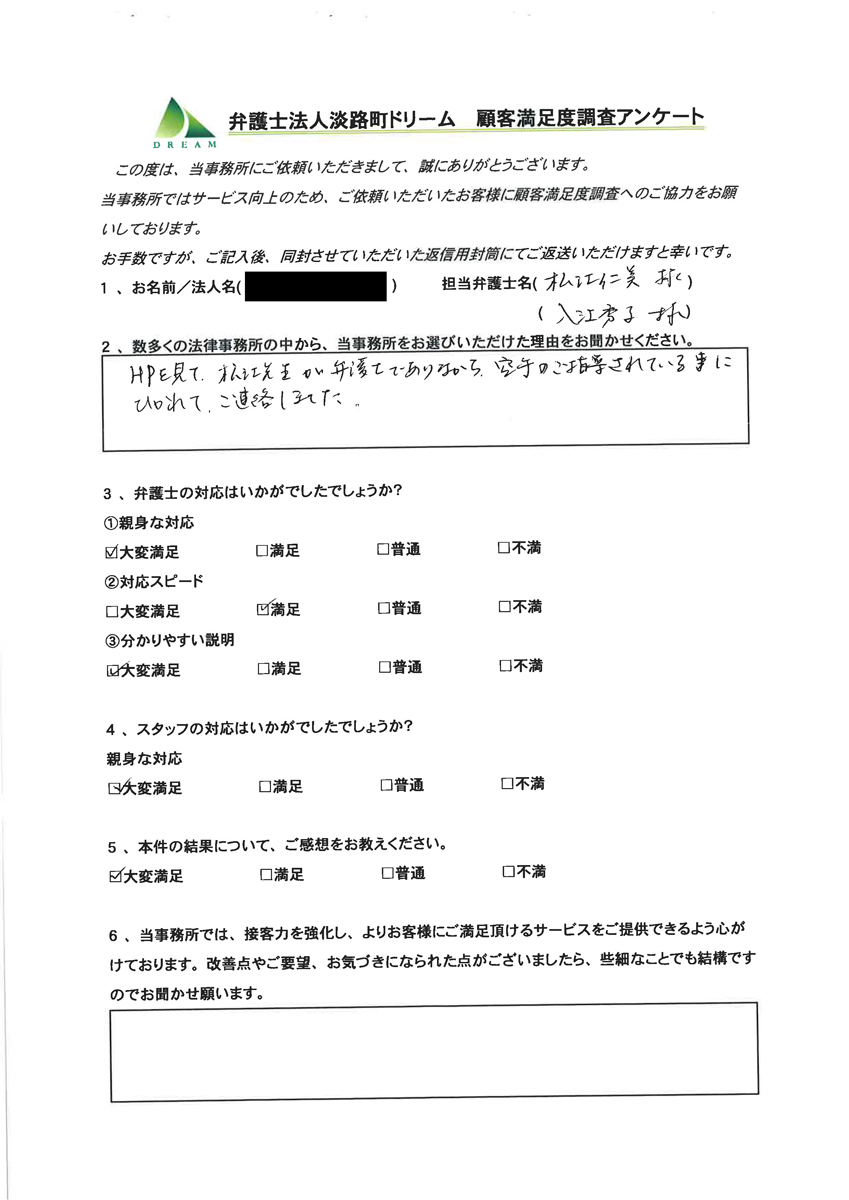 DREAM
弁護士法人淡路町ドリーム 顧客満足度調査アンケート
この度は、当事務所にご依頼いただきまして、誠にありがとうございます。
当事務所ではサービス向上のため、ご依頼いただいたお客様に顧客満足度調査へのご協力をお願
いしております。
お手数ですが、ご記入後、同封させていただいた返信用封筒にてご返送いただけますと幸いです。
1、お名前/法人名( ) 担当弁護士名( 松江仁美 様 )
( 入江秀子 様 )
2、数多くの法律事務所の中から、当事務所をお選びいただけた理由をお聞かせください。
HPを見て、松江先生が弁護士でありながら、空手のご指導されている事に
ひかれて、ご連絡しました。
3、弁護士の対応はいかがでしたでしょうか?
①親身な対応
☑大変満足 □満足 □普通 □不満
②対応スピード
□大変満足 ☑満足 □普通 □不満
③分かりやすい説明
☑大変満足 □満足 □普通 □不満
4、スタッフの対応はいかがでしたでしょうか?
親身な対応
☑大変満足 □満足 □普通 □不満
5、本件の結果について、ご感想をお教えください。
☑大変満足 □満足 □普通 □不満
6、当事務所では、接客力を強化し、よりお客様にご満足頂けるサービスをご提供できるよう心が
けております。改善点やご要望、お気づきになられた点がございましたら、些細なことでも結構です
のでお聞かせ願います。